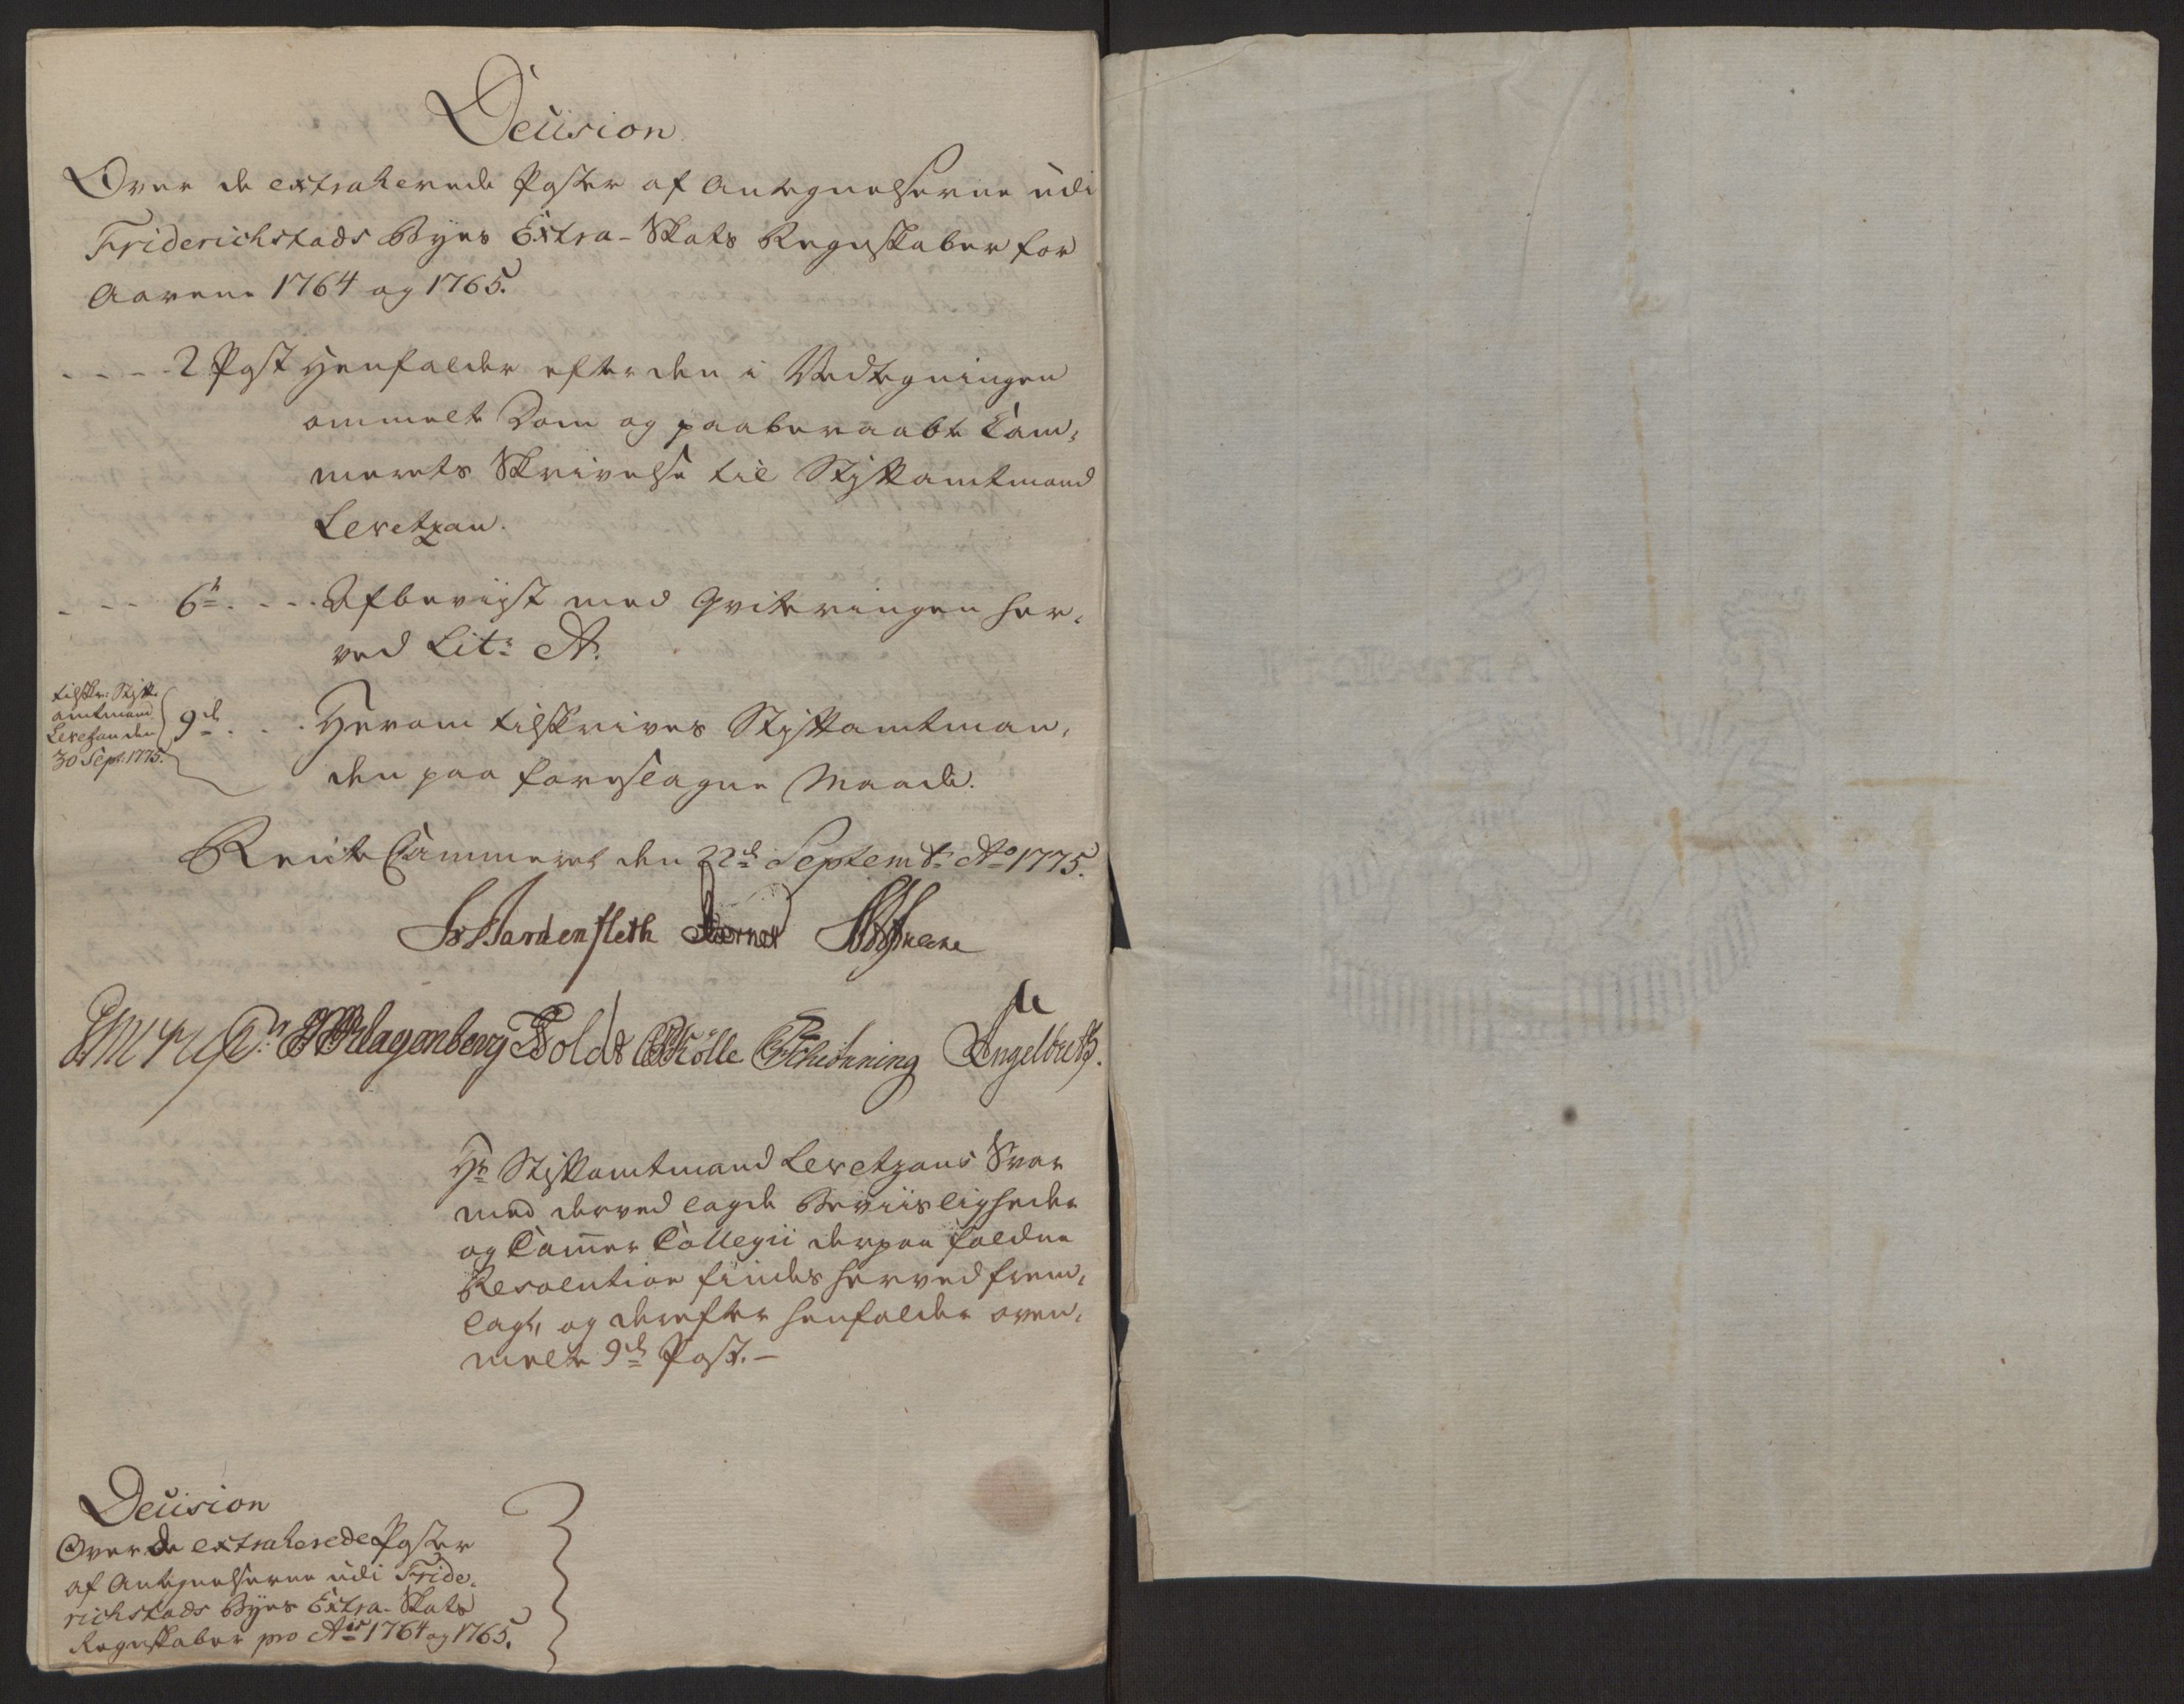 Decision
Over de extraherede Poster af Antegnelserne udi
Friderichstads Byes Extra-Skats Regnskaber for
Aarene 1764 og 1765.
2 Post Henfalder efter den i Vedtegningen
ommelte Dom og paaberaabte Cam-
merets Skrivelse til Stiftamtmand
Levetzau.
6te Afbeviist med Qvitteringen her-
ved Litr A.
tilskr. Stift-
amtmand
Levetzau den
30 Sept. 1775.
9de Herom tilskrives Stiftamtman-
den paa foreslagne Maade.
Rente Cammeret den 22de Septembr Ao 1775.
Vardenfleth
Klagenberg Holdt Kölle Schiönning Engelbreth.
Hr Stiftamtmand Levetzaus Svar
med derved lagde Beviisligheder
og Cammer Collegii derpaa faldne
Resolution findes herved frem-
lagt, og derefter henfalder oven-
melte 9de Post. –
Decision
Over de extraherede Poster
af Antegnelserne udi Fride-
richstads Byes Extra-Skats
Regnskaber pro Ais 1764 og 1765.